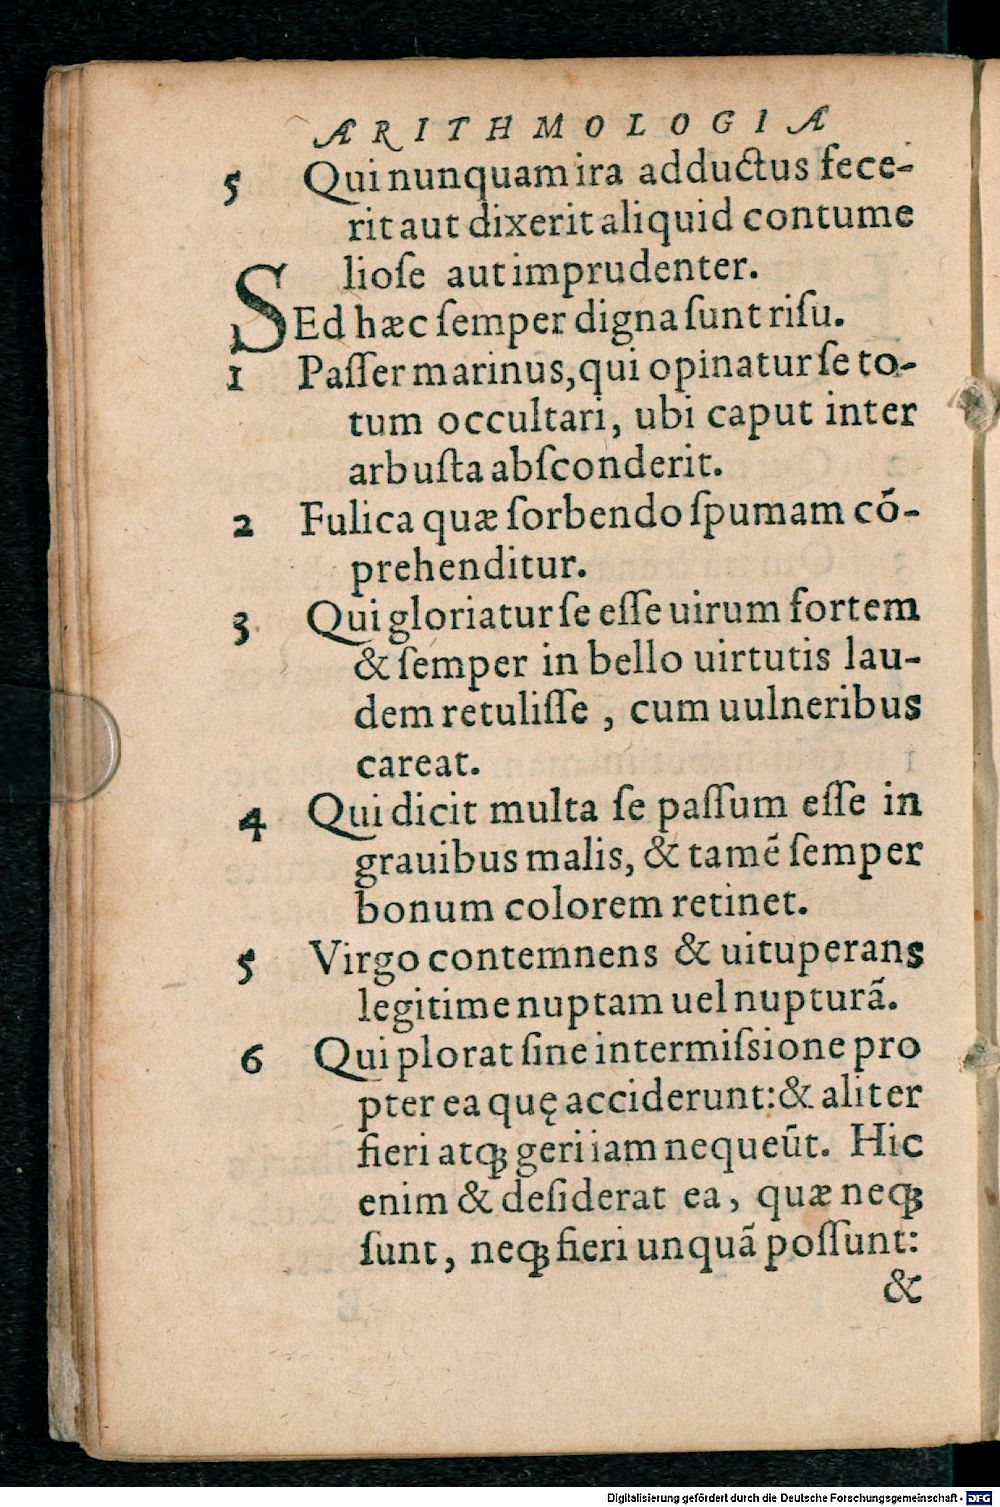 ARITHMOLOGIA
5 Qui nunquam ira adductus fece-
rit aut dixerit aliquid contume
lioſe aut imprudenter.
SEd hæc ſemper digna ſunt riſu.
1 Paſſer marinus, qui opinatur ſe to-
tum occultari, ubi caput inter
arbuſta abſconderit.
2 Fulica quæ ſorbendo ſpumam cõ-
prehenditur.
3 Qui gloriatur ſe eſſe uirum fortem
& ſemper in bello uirtutis lau-
dem retuliſſe , cum uulneribus
careat.
4 Qui dicit multa ſe paſſum eſſe in
grauibus malis, & tamẽ ſemper
bonum colorem retinet.
5 Virgo contemnens & uituperans
legitime nuptam uel nupturã.
6 Qui plorat ſine intermiſsione pro
pter ea quę acciderunt: & aliter
fieri atq́ꝫ geri iam nequeũt. Hic
enim & deſiderat ea, quæ neqꝫ
ſunt, neqꝫ fieri unquã poſſunt:
&
Digitalisierung gefördert durch die Deutsche Forschungsgemeinschaft - DFG